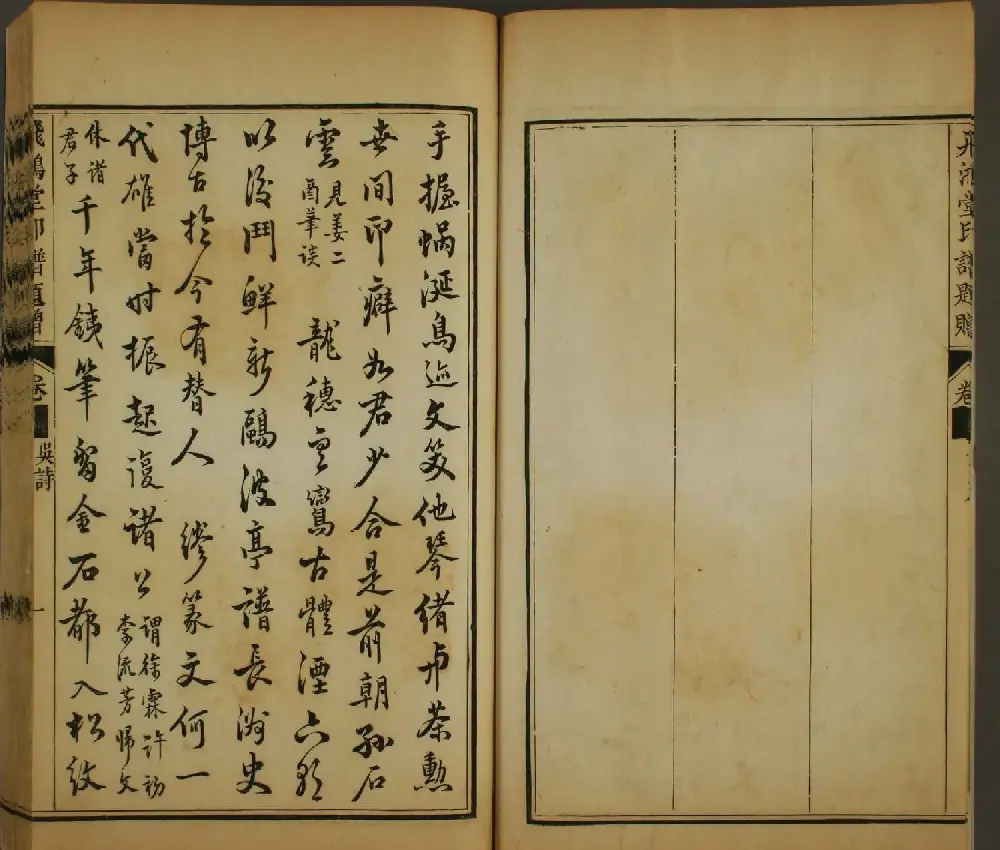 飛鴻堂印譜題贈
卷
手握蝸涎鳥迹文笑他琴緒与茶勳
世間印癖如君少合是前朝孫石
雲見姜二酉筆談 龍穗雲鸞古體湮六朝
以後鬥鮮新鷗波亭譜長淵史
博古於今有替人 繆篆文何一
代雄當時振起復諸公謂徐霖許初李流芳歸文
休諸君子 千年銕筆留金石都入松紋
飛鴻堂印譜題贈 卷 吳詩 一